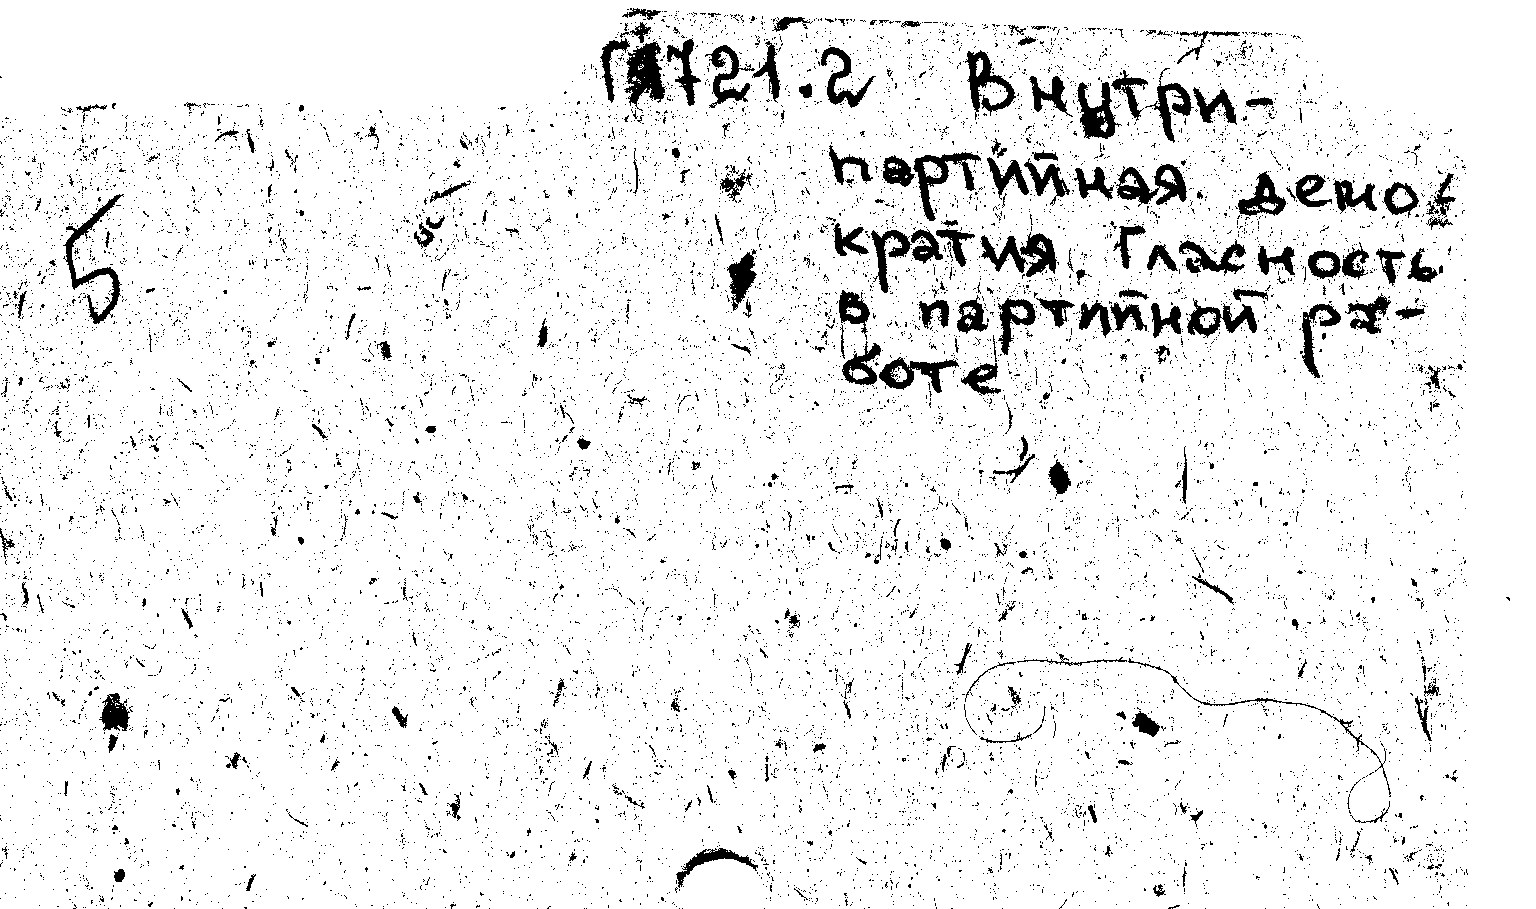 721.2 Внутри-
партийная демо-
кратия. Гласность
в партийной ра-
боте
5